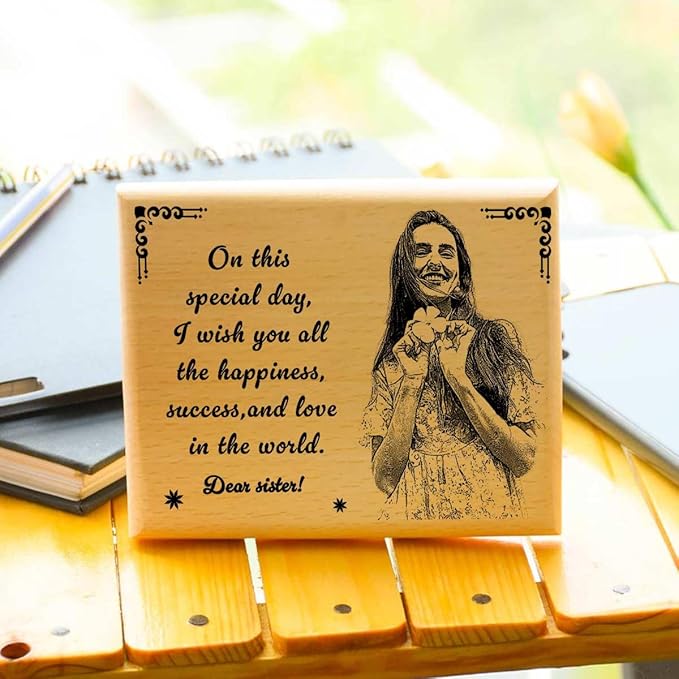 On this
special day,
I wish you all
the happiness,
success,and love
in the world.
Dear sister!